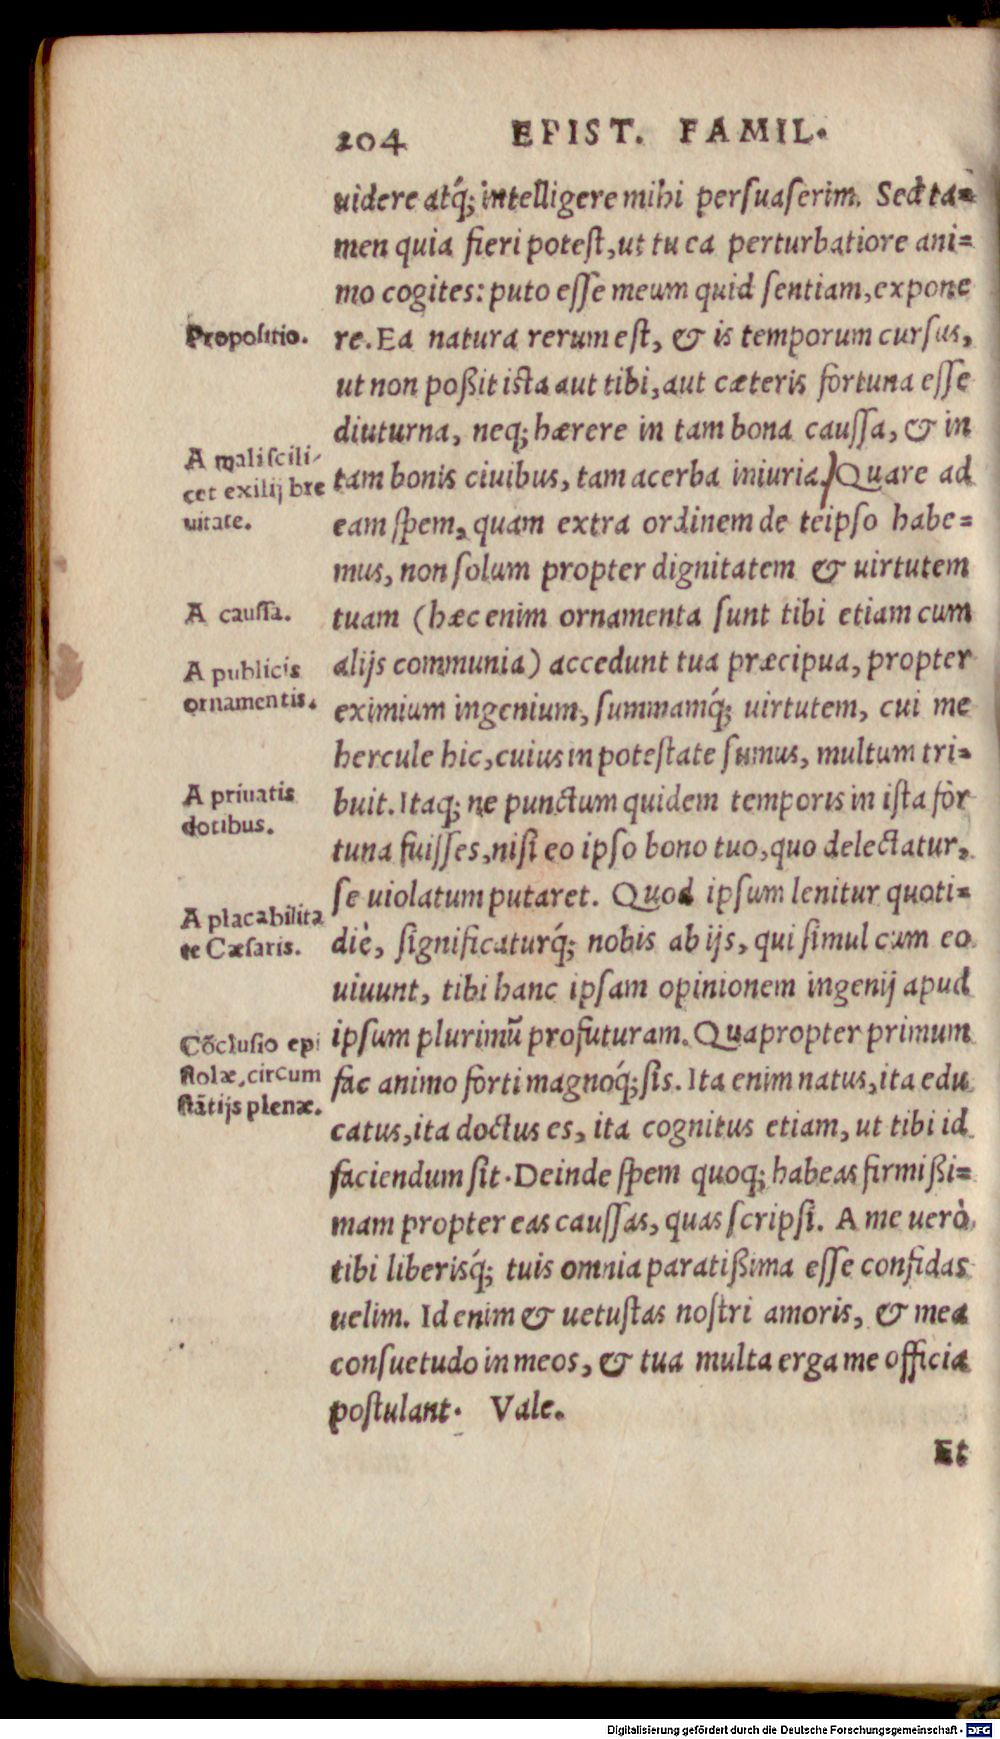 204 EPIST. FAMIL.
uidere atq́; intelligere mihi persuaserim. Sed ta=
men quia fieri potest, ut tu ea perturbatiore ani=
mo cogites: puto esse meum quid sentiam, expone
Propositio.
re. Ea natura rerum est, & is temporum cursus,
ut non poßit ista aut tibi, aut cæteris fortuna esse
diuturna, neq; hærere in tam bona caussa, & in
A mali scili-
cet exilij bre
uitate.
tam bonis ciuibus, tam acerba iniuria. Quare ad
eam spem, quam extra ordinem de teipso habe=
mus, non solum propter dignitatem & uirtutem
A caussa.
tuam (hæc enim ornamenta sunt tibi etiam cum
A publicis
ornamentis.
alijs communia) accedunt tua præcipua, propter
eximium ingenium, summamq́; uirtutem, cui me
hercule hic, cuius in potestate sumus, multum tri=
A priuatis
dotibus.
buit. Itaq; ne punctum quidem temporis in ista for
tuna fuisses, nisi eo ipso bono tuo, quo delectatur,
se uiolatum putaret. Quod ipsum lenitur quoti=
A placabilita
te Cæsaris.
diè, significaturq́; nobis ab ijs, qui simul cum eo
uiuunt, tibi hanc ipsam opinionem ingenij apud
Cōclusio epi
stolæ, circum
stātijs plenæ.
ipsum plurimū profuturam. Quapropter primum
fac animo forti magnoq́; sis. Ita enim natus, ita edu
catus, ita doctus es, ita cognitus etiam, ut tibi id
faciendum sit. Deinde spem quoq; habeas firmißi=
mam propter eas caussas, quas scripsi. A me uerò
tibi liberisq́; tuis omnia paratißima esse confidas
uelim. Id enim & uetustas nostri amoris, & mea
consuetudo in meos, & tua multa erga me officia
postulant. Vale.
Et
Digitalisierung gefördert durch die Deutsche Forschungsgemeinschaft - DFG